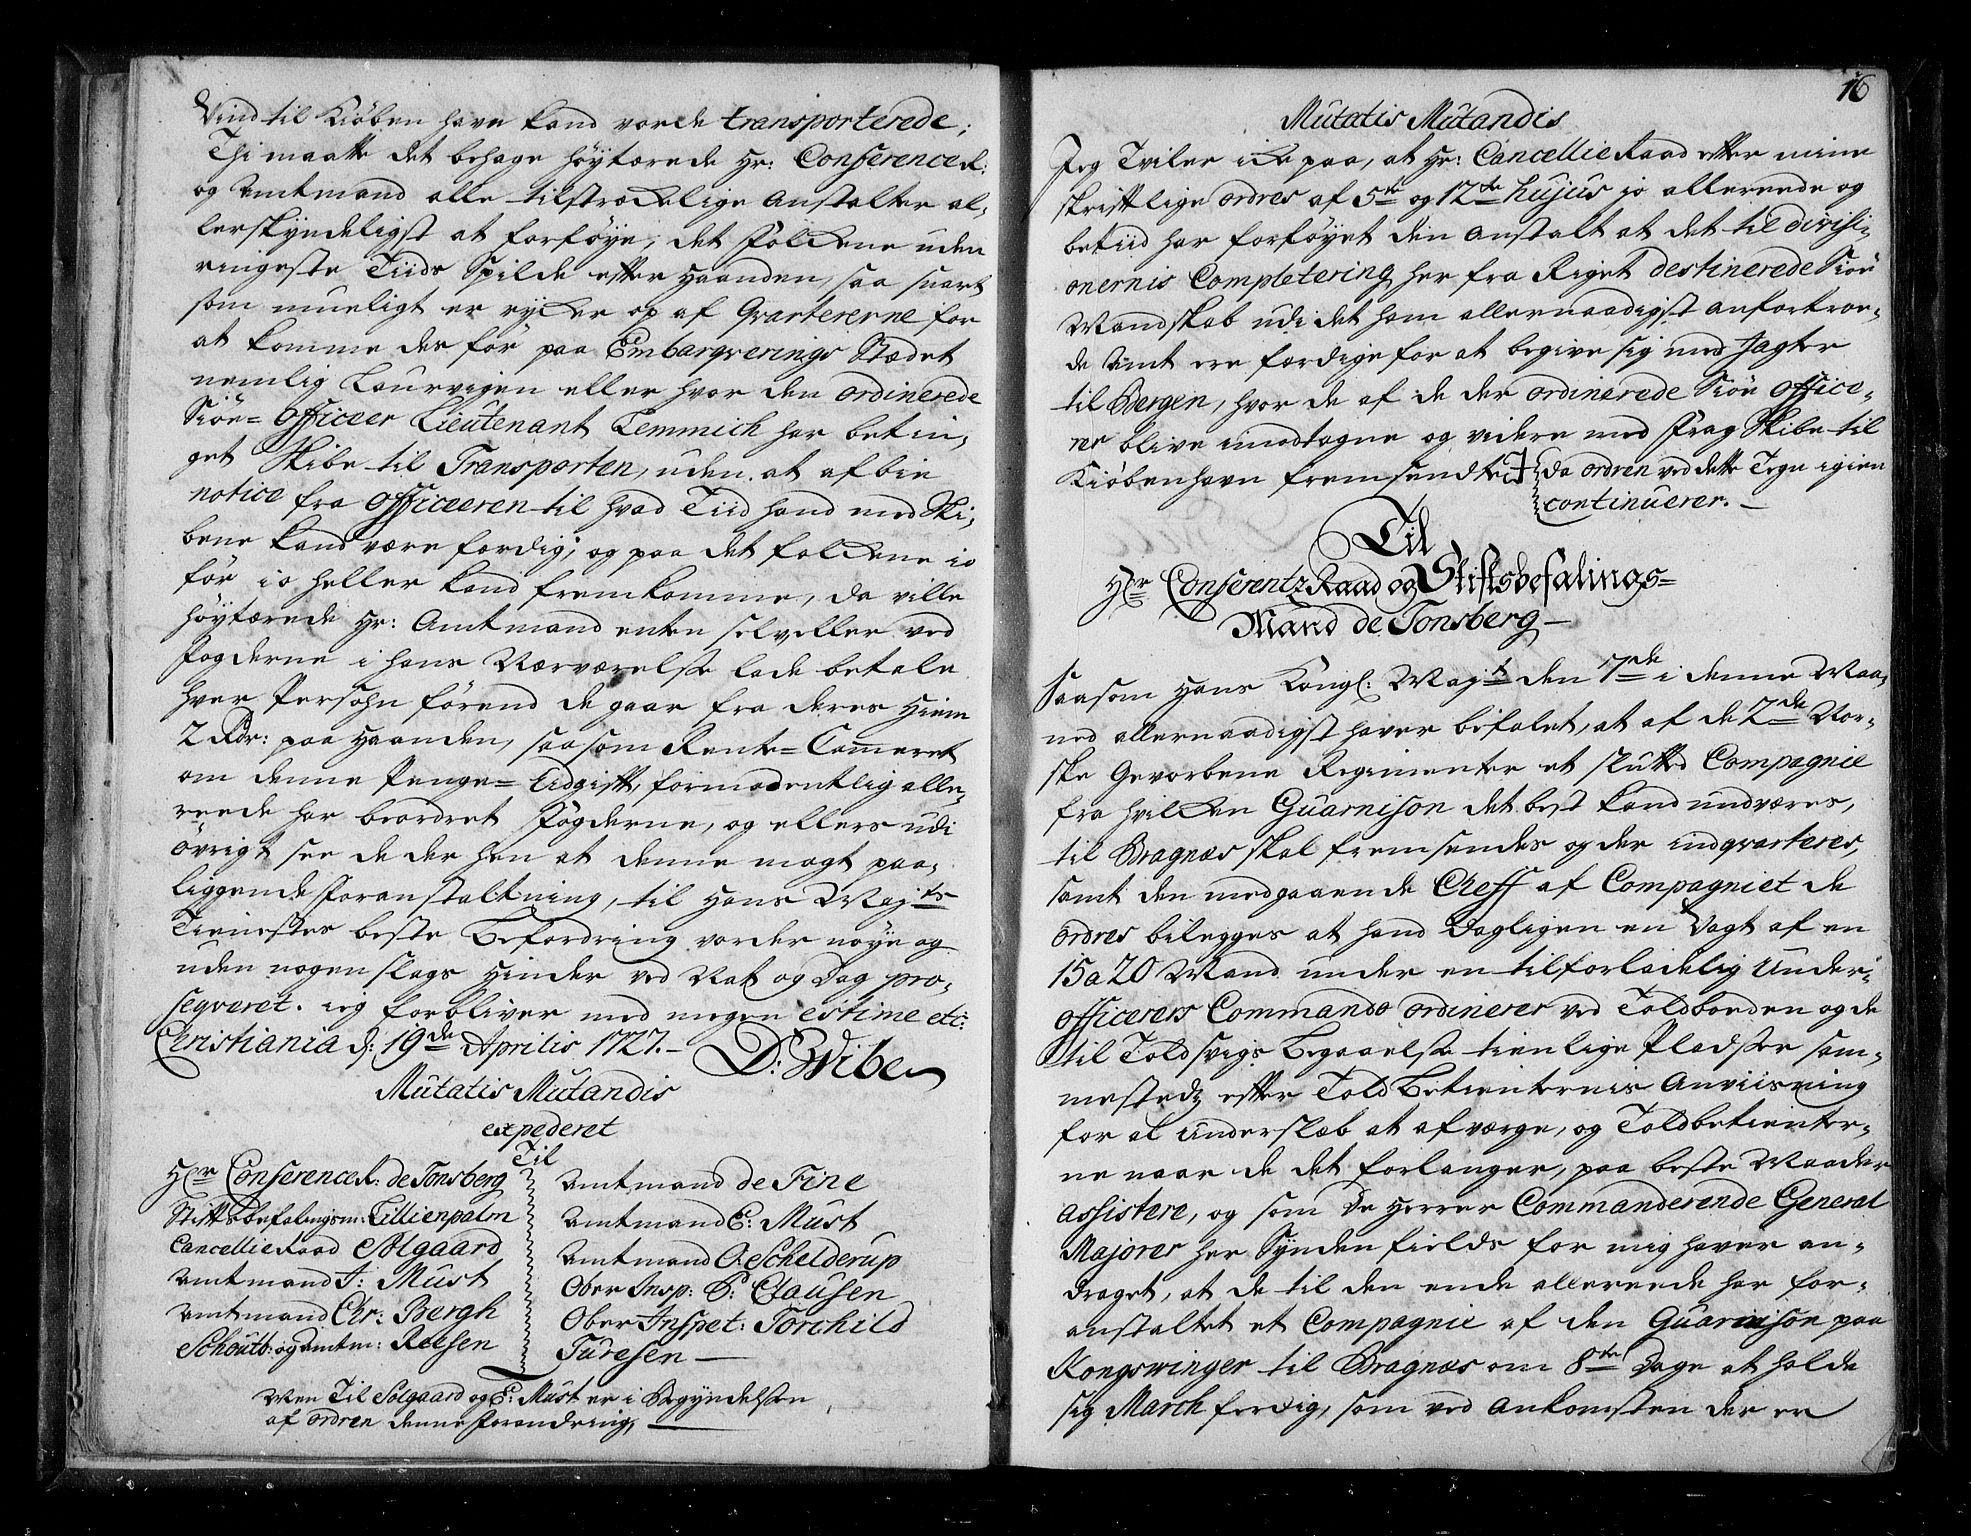 Vind til Kiöbenhavn kand vorde transporterede;
Thi maatte det behage höytærede Hr: Conference R:
og Amtmand alle tilstræckelige Anstalter al-
lerskyndeligst at forföye, det Folckene uden
ringeste Tiids Spilde efter Haanden, saa snart
som mueligt er rycker op af Qvartererne for
at komme der för paa Embarqverings Stædet
nemlig Laurvigen eller hvor den ordinerede
Siöe-Officeer Lieutenant Lemmich har betin-
get Skibe til Transporten, uden at afbie
notice fra Officeeren til hvad Tiid hand med Ski-
bene kand være færdig; og paa det folckene io
för io heller kand fremkomme, da ville
höytærede Hr: Amtmand enten selv eller ved
Fogderne i hans Nærværelse lade betale
hver Persohn förend de gaar fra deres Hiem
2 Rdr: paa Haanden, saasom Rente-Cammeret
om denne Penge-Udgift, formodentlig alle-
reede har beordret Fogderne, og ellers udi
övrigt see de der hen at denne magt paa-
liggende Foranstaltning, til Hans Mayts
Tienestes beste Befordring vorder nöye og
uden nogen slags Hinder ved Nat og Dag pro-
seqveret. ieg forbliver med megen estime etc:
Christiania d: 19de Aprilis 1727.- D: Wibe
Mutatis Mutandis
expederet
Til
Hr Conference R: de Tonsberg
Stiftsbefalingsm: Lillienpalm
Cancellie Raad Solgaard
Amtmand J: Must
Amtmand Chr: Bergh
Schoutb: og Amtm: Reesen
Amtmand de Fine
Amtmand E: Must
Amtmand O Schelderup
Ober Insp: P: Clausen
Ober Inspet: Torchild
Turesen —
Men Til Solgaard og E: Must er i Begyndelsen
af ordren denne Forandring, —
16
Mutatis Mutandis
Jeg Tviler icke paa, at Hr: Cancellie Raad efter mine
skriftlige ordres af 5te og 12te hujus jo allereede og
betiid har forföyet den Anstalt at det til Divisi-
onernis Completering her fra Riget destinerede Siöe
Mandskab udi det ham allernaadigst anfortroe-
de Amt ere færdige for at begive sig med Jagter
til Bergen, hvor de af de der ordinerede Siöe Office-
rer blive imodtagne og videre med Frag Skibe til
Kiöbenhavn fremsendte ‡ da ordren ved dette Tegn igien
continuerer. —
Til
Hr Conferentz Raad og Stiftsbefalings-
Mand de Tonsberg —
Saasom Hans Kongl: Mayt den 7de i denne Maa-
ned allernaadigst haver befalet, at af de 2de Nor-
ske Gevorbene Regimenter et sluttet Compagnie
fra hvilcken Guarnison det best kand undværes,
til Bragnæs skal fremsendes og der indqvarteres,
samt den medgaaende Cheff af Compagniet de
ordres bilegges at hand Dagligen en Vagt af en
15 a 20 Mand under en tilforladelig Under-
officeers Commando ordinerer ved Toldboeden og de
til Told Svigs Begaaelse tienlige Pladser sam-
mestedz efter Told Betienternis Anviisning
for al Underslæb at afværge, og Toldbetienter-
ne naar de det forlanger, paa beste Maader
assistere, og som De Herrer Commanderende General
Majorer her Synden fields for mig haver an-
draget, at de til den ende allereede har for-
anstaltet et Compagnie af den Guarnison paa
Kongswinger til Bragnæs om 8te Dage at holde
sig March færdig, som ved Ankomsten der er